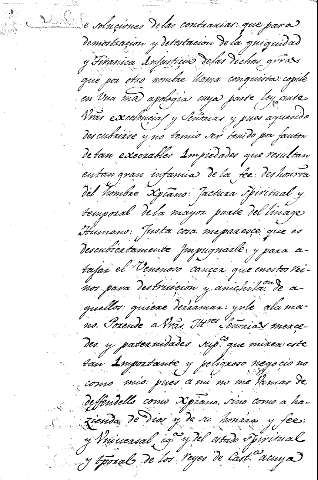 e soluciones de las contrarias: que para
demostracion y detestacion de la iniquidad
y tiranica Injustiçia de las dichas grãs
que por otro nombre llama conquista copile
en Una mã apologia cuya parte ley ante
Vrãs excelencias y Señorias y pues aquerido
descubrirse y no temio ser tenido por fautor
de tan execrables Impiedades que resultan
en tan gran infamia de la fee: deshonrra
del Nombre Xpiano: Jactura Spiritual y
temporal de la mayor parte del linage
Humano: Justa cosa me paresce que es
descubiertamente Impugnarle, y para a-
tajar el Venenoso cançer que en estos rei-
nos para destruicion y de a-
quellos quiere derramar: yrle a la ma-
no. Porende a Vrãs Señorias merce-
des y paternidades sup.co que miren este
tan Importante y peligroso negocio no
como mio pues a mi no me Va mas de
deffendello como Xpiano, sino como a ha-
zienda de dios y de su honrra y fee
y Universal y del estado Spiritual
y de los reyes de Cast.a a cuya